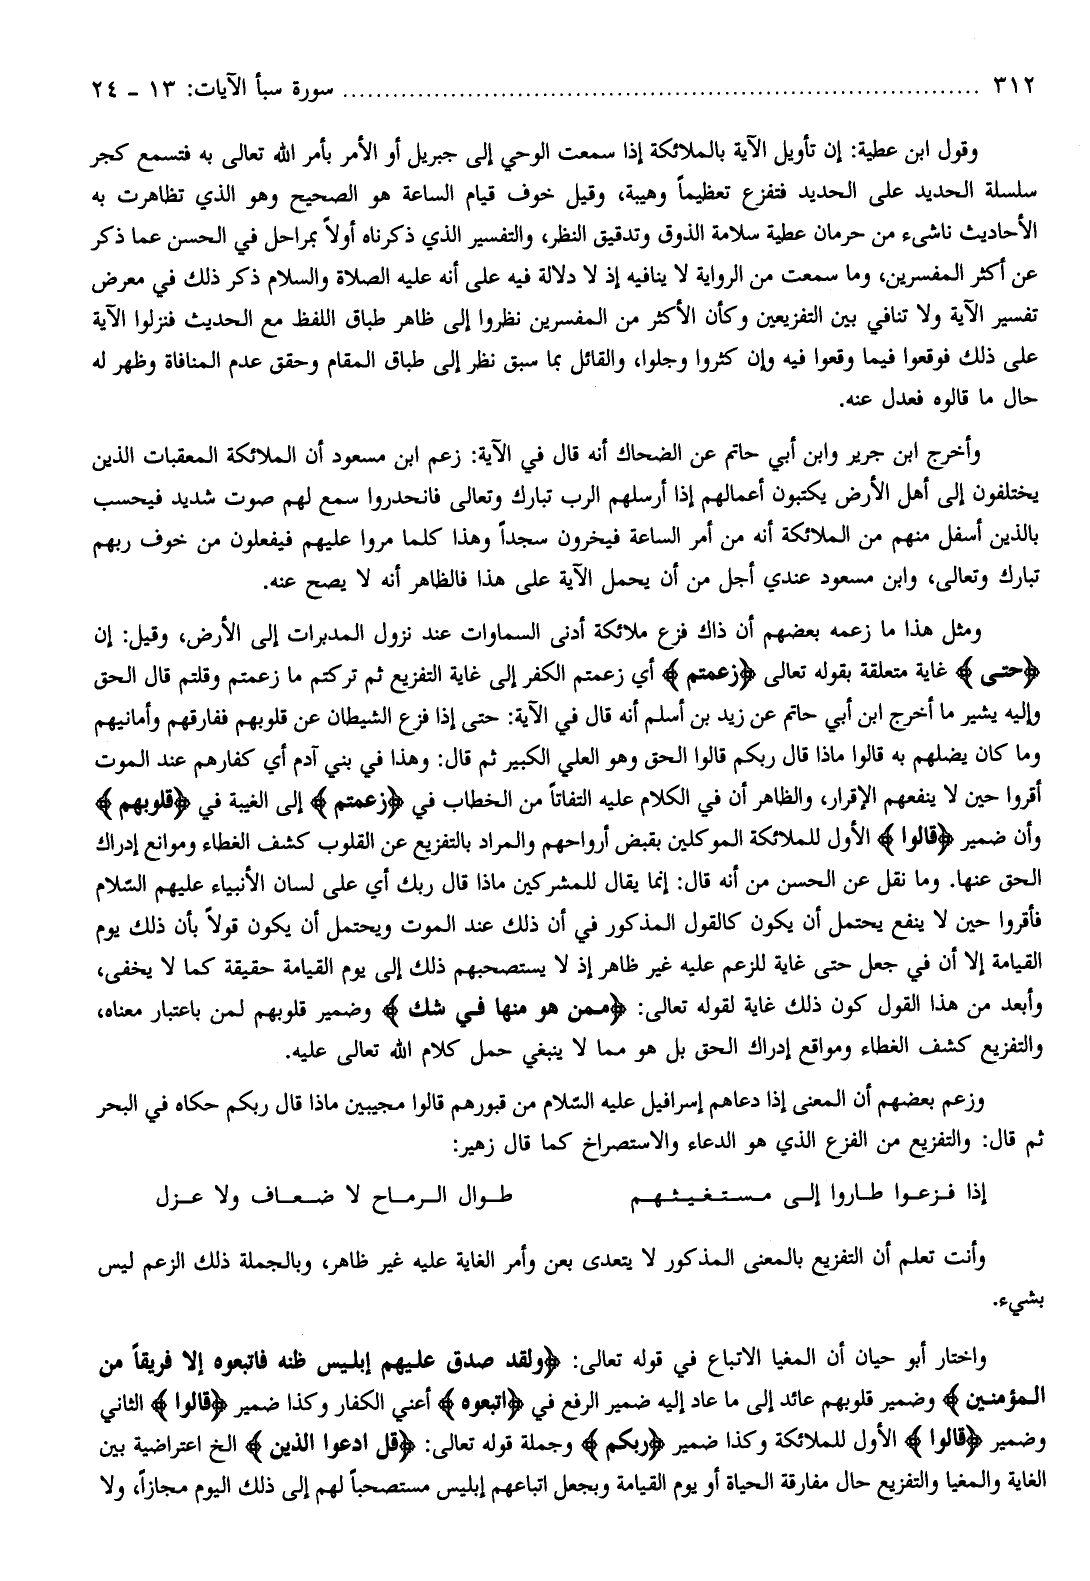 ٣١٢ ........................................................................ سورة سبأ الآيات: ١٣ - ٢٤
وقول ابن عطية: إن تأويل الآية بالملائكة إذا سمعت الوحي إلى جبريل أو الأمر بأمر الله تعالى به فتسمع كجر
سلسلة الحديد على الحديد فتفزع تعظيماً وهيبة، وقيل خوف قيام الساعة هو الصحيح وهو الذي تظاهرت به
الأحاديث ناشىء من حرمان عطية سلامة الذوق وتدقيق النظر، والتفسير الذي ذكرناه أولاً بمراحل في الحسن عما ذكر
عن أكثر المفسرين، وما سمعت من الرواية لا ينافيه إذ لا دلالة فيه على أنه عليه الصلاة والسلام ذكر ذلك في معرض
تفسير الآية ولا تنافي بين التفزيعين وكأن الأكثر من المفسرين نظروا إلى ظاهر طباق اللفظ مع الحديث فنزلوا الآية
على ذلك فوقعوا فيما وقعوا فيه وإن كثروا وجلوا، والقائل بما سبق نظر إلى طباق المقام وحقق عدم المنافاة وظهر له
حال ما قالوه فعدل عنه.
وأخرج ابن جرير وابن أبي حاتم عن الضحاك أنه قال في الآية: زعم ابن مسعود أن الملائكة المعقبات الذين
يختلفون إلى أهل الأرض يكتبون أعمالهم إذا أرسلهم الرب تبارك وتعالى فانحدروا سمع لهم صوت شديد فيحسب
بالذين أسفل منهم من الملائكة أنه من أمر الساعة فيخرون سجداً وهذا كلما مروا عليهم فيفعلون من خوف ربهم
تبارك وتعالى، وابن مسعود عندي أجل من أن يحمل الآية على هذا فالظاهر أنه لا يصح عنه.
ومثل هذا ما زعمه بعضهم أن ذاك فزع ملائكة أدنى السماوات عند نزول المدبرات إلى الأرض، وقيل: إن
﴿حتى﴾ غاية متعلقة بقوله تعالى ﴿زعمتم﴾ أي زعمتم الكفر إلى غاية التفزيع ثم تركتم ما زعمتم وقلتم قال الحق
وإليه يشير ما أخرج ابن أبي حاتم عن زيد بن أسلم أنه قال في الآية: حتى إذا فزع الشيطان عن قلوبهم ففارقهم وأمانيهم
وما كان يضلهم به قالوا ماذا قال ربكم قالوا الحق وهو العلي الكبير ثم قال: وهذا في بني آدم أي كفارهم عند الموت
أقروا حين لا ينفعهم الإقرار، والظاهر أن في الكلام عليه التفاتاً من الخطاب في ﴿زعمتم﴾ إلى الغيبة في ﴿قلوبهم﴾
وأن ضمير ﴿قالوا﴾ الأول للملائكة الموكلين بقبض أرواحهم والمراد بالتفزيع عن القلوب كشف الغطاء وموانع إدراك
الحق عنها. وما نقل عن الحسن من أنه قال: إنما يقال للمشركين ماذا قال ربك أي على لسان الأنبياء عليهم السّلام
فأقروا حين لا ينفع يحتمل أن يكون كالقول المذكور في أن ذلك عند الموت ويحتمل أن يكون قولاً بأن ذلك يوم
القيامة إلا أن في جعل حتى غاية للزعم عليه غير ظاهر إذ لا يستصحبهم ذلك إلى يوم القيامة حقيقة كما لا يخفى،
وأبعد من هذا القول كون ذلك غاية لقوله تعالى: ﴿ممن هو منها في شك﴾ وضمير قلوبهم لمن باعتبار معناه،
والتفزيع كشف الغطاء ومواقع إدراك الحق بل هو مما لا ينبغي حمل كلام الله تعالى عليه.
وزعم بعضهم أن المعنى إذا دعاهم إسرافيل عليه السّلام من قبورهم قالوا مجيبين ماذا قال ربكم حكاه في البحر
ثم قال: والتفزيع من الفزع الذي هو الدعاء والاستصراخ كما قال زهير:
إذا فزعوا طاروا إلى مستغيثهم طوال الرماح لا ضعاف ولا عزل
وأنت تعلم أن التفزيع بالمعنى المذكور لا يتعدى بعن وأمر الغاية عليه غير ظاهر، وبالجملة ذلك الزعم ليس
بشيء.
واختار أبو حيان أن المغيا الاتباع في قوله تعالى: ﴿ولقد صدق عليهم إبليس ظنه فاتبعوه إلا فريقاً من
المؤمنين﴾ وضمير قلوبهم عائد إلى ما عاد إليه ضمير الرفع في ﴿اتبعوه﴾ أعني الكفار وكذا ضمير ﴿قالوا﴾ الثاني
وضمير ﴿قالوا﴾ الأول للملائكة وكذا ضمير ﴿ربكم﴾ وجملة قوله تعالى: ﴿قل ادعوا الذين﴾ الخ اعتراضية بين
الغاية والمغيا والتفزيع حال مفارقة الحياة أو يوم القيامة وبجعل اتباعهم إبليس مستصحباً لهم إلى ذلك اليوم مجازاً، ولا